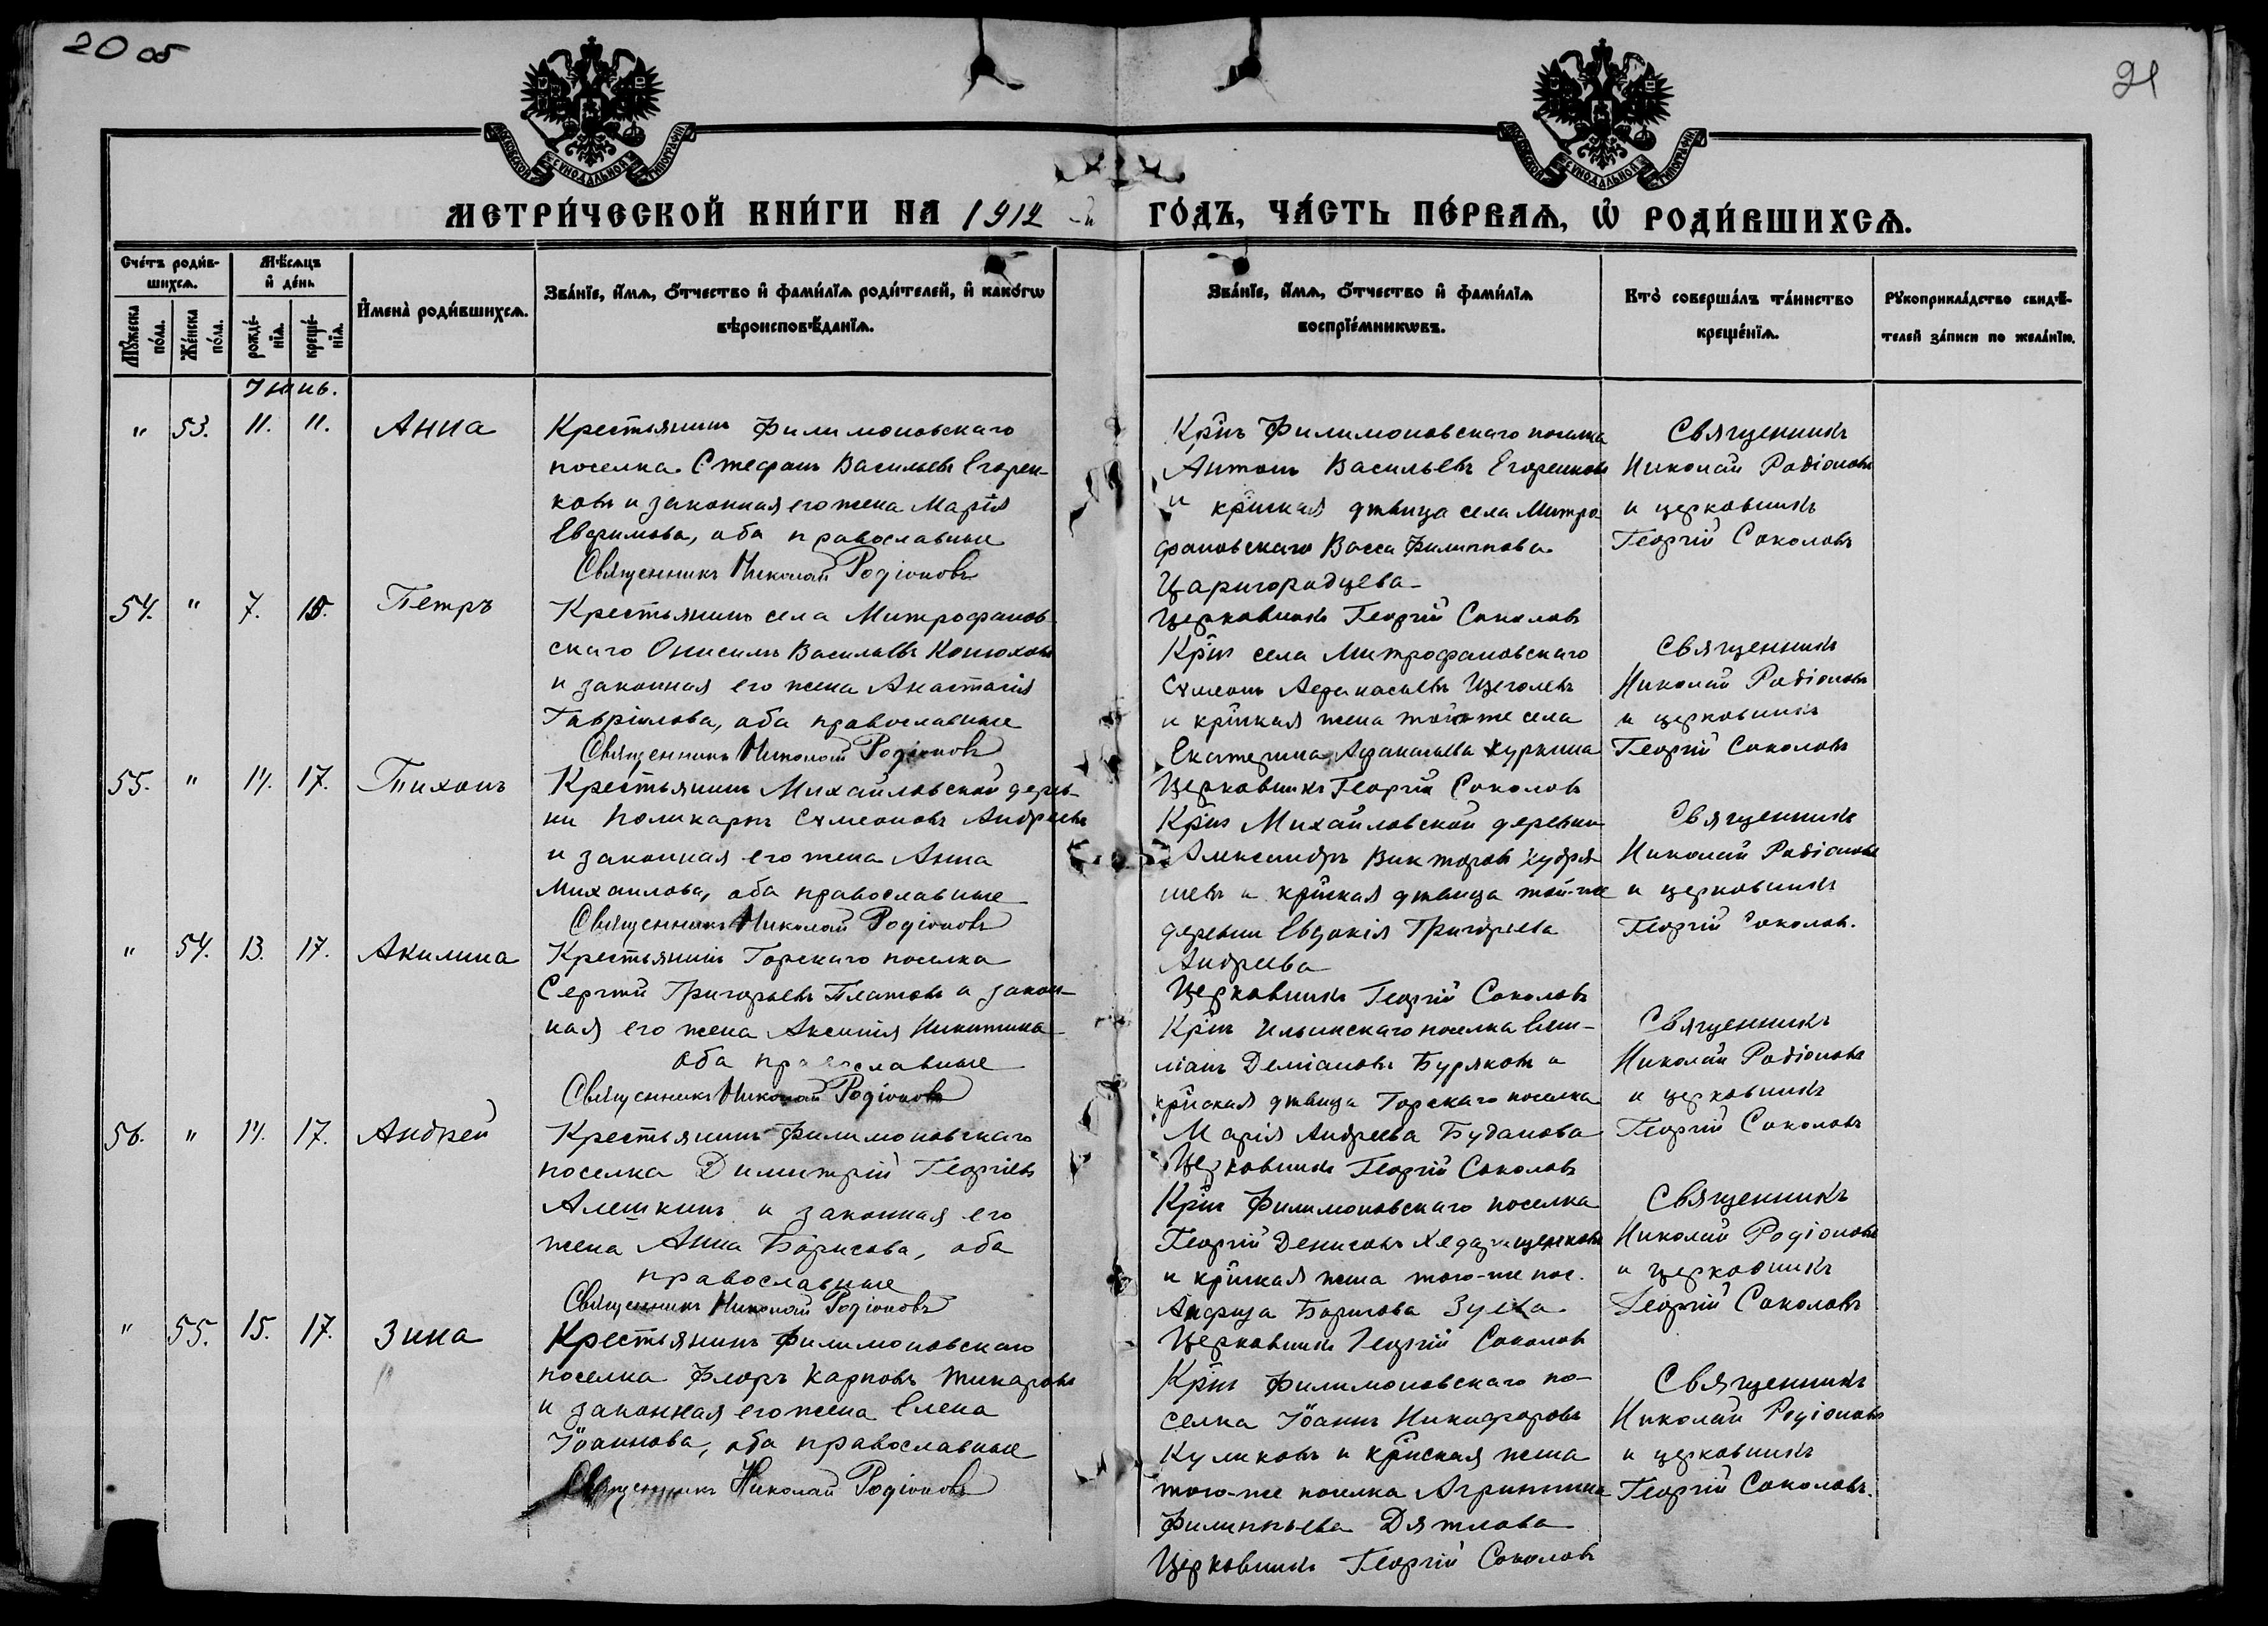 20 об
21
МОСКОВСКОЙ СУНОДАЛЬНОЙ ТИПОГРАФІИ
МОСКОВСКОЙ СУНОДАЛЬНОЙ ТИПОГРАФІИ
МЕТРИ́ЧЕСКОЙ КНИ́ГИ НА 1912 -й ГО́ДЪ, ЧА́СТЬ ПЕ́РВАѦ, Ѡ҆ РОДИ́ВШИХСѦ.
Сче́тъ роди́в-
шихсѧ.
Мꙋ́жеска по́ла.
Же́нска по́ла.
Мѣ́сѧцъ
и҆ де́нь
рожде́-
нїѧ.
креще́-
нїѧ.
И҆мена̀ роди́вшихсѧ.
Зва́нїе, и҆́мѧ, ѻ҆́тчество и҆ фами́лїѧ роди́телей, и҆ како́гѡ
вѣроисповѣ́данїѧ.
Зва́нїе, и҆́мѧ, ѻ҆́тчество и҆ фами́лїѧ
воспрїе́мникѡвъ.
Кто̀ соверша́лъ та́инство
креще́нїѧ.
Рꙋкоприкла́дство свидѣ́-
телей за́писи по жела́нїю.
Іюнь.
" 53. 11. 11. Анна
Крестьянинъ Филимоновскаго
поселка Стефанъ Васильевъ Егорен-
ковъ и законная его жена Марія
Евфимова, оба православные
Священникъ Николай Родіоновъ
Кр̃нъ Филимоновскаго поселка
Антонъ Васильевъ Егоренковъ
и кр̃нская дѣвица села Митро-
фановскаго Васса Филиппова
Царигородцева
Церковникъ Георгій Соколовъ
Священникъ
Николай Родіоновъ
и церковникъ
Георгій Соколовъ
54. " 7. 15. Петръ
Крестьянинъ села Митрофанов-
скаго Онисимъ Васильевъ Конюховъ
и законная его жена Анастасія
Гавріилова, оба православные
Священникъ Николай Родіоновъ
Кр̃нъ села Митрофановскаго
Сѵмеонъ Афанасьевъ Щеголевъ
и кр̃нская жена того-же села
Екатерина Афанасьева Куркина
Церковникъ Георгій Соколовъ
Священникъ
Николай Родіоновъ
и церковникъ
Георгій Соколовъ
55. " 14. 17. Тихонъ
Крестьянинъ Михайловской дерев-
ни Поликарпъ Сѵмеоновъ Андреевъ
и законная его жена Анна
Михаилова, оба православные
Священникъ Николай Родіоновъ
Кр̃нъ Михайловской деревни
Александръ Викторовъ Кудря-
шевъ и кр̃нская дѣвица той-же
деревни Евдокія Григорьева
Андреева
Церковникъ Георгій Соколовъ
Священникъ
Николай Родіоновъ
и церковникъ
Георгій Соколовъ.
" 54. 13. 17. Акилина
Крестьянинъ Горскаго поселка
Сергѣй Григорьевъ Платовъ и закон-
ная его жена Аксинія Никитина
оба православные
Священникъ Николай Родіоновъ
Кр̃нъ Ильинскаго поселка Еми-
ліанъ Деміановъ Буряковъ и
кр̃нская дѣвица Горскаго поселка
Марія Андреева Буданова
Церковникъ Георгій Соколовъ
Священникъ
Николай Родіоновъ
и церковникъ
Георгій Соколовъ
56. " 14. 17. Андрей
Крестьянинъ Филимоновскаго
поселка Димитрій Георгіевъ
Алешкинъ и законная его
жена Анна Борисова, оба
православные
Священникъ Николай Родіоновъ
Кр̃нъ Филимоновскаго поселка
Георгій Денисовъ
и кр̃нская жена того-же пос.
Борисова Зуева
Церковникъ Георгій Соколовъ
Священникъ
Николай Родіоновъ
и церковникъ
Георгій Соколовъ
" 55. 15. 17. Зина
Крестьянинъ Филимоновскаго
поселка Флоръ Карповъ Жикаровъ
и законная его жена Елена
Іоаннова, оба православные
Священникъ Николай Родіоновъ
Кр̃нъ Филимоновскаго по-
селка Іоаннъ Никифоровъ
Куликовъ и кр̃нская жена
того-же поселка Агриппина
Филиппьева Дятлова
Церковникъ Георгій Соколовъ
Священникъ
Николай Родіоновъ
и церковникъ
Георгій Соколовъ.